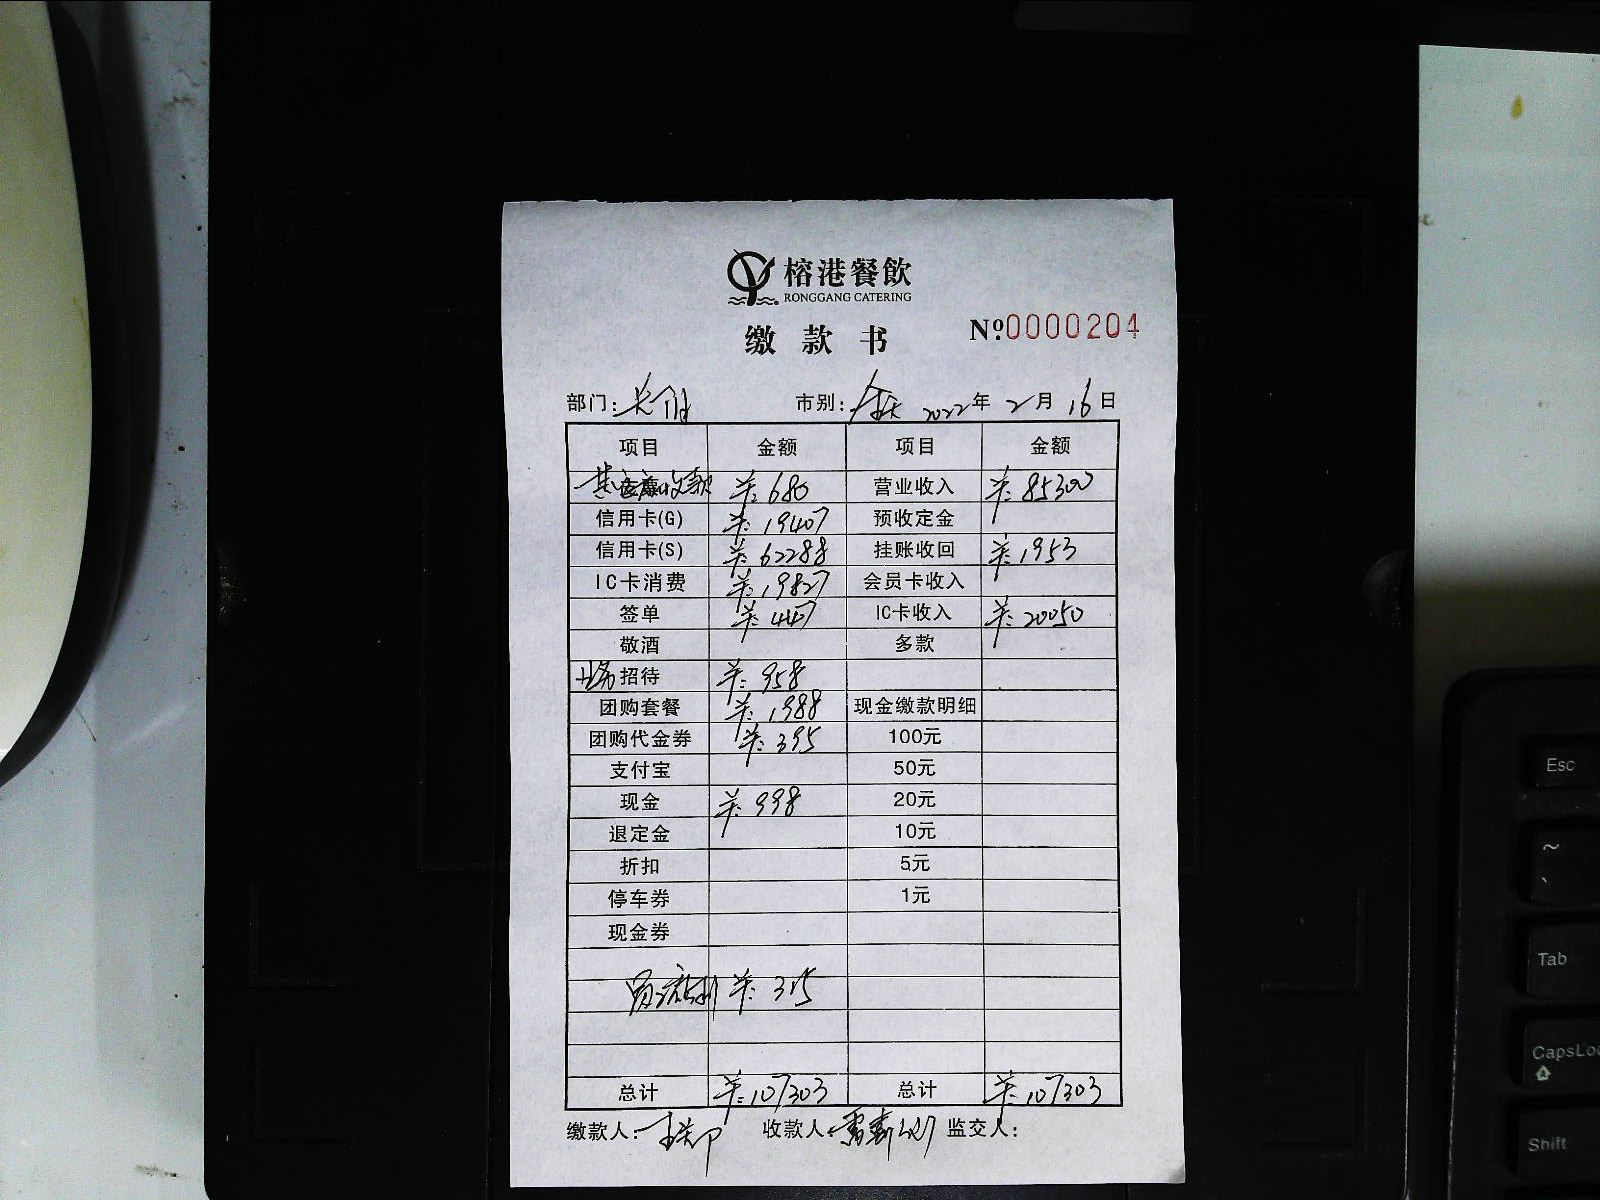 榕港餐飲
RONGGANG CATERING
缴款书
№0000204
部门: 市别: 全天 2022年 2月 16日
项目 金额 项目 金额
应收款 ¥:680 营业收入 ¥:85300
信用卡(G) ¥:19407 预收定金
信用卡(S) ¥:62288 挂账收回 ¥:1953
IC卡消费 ¥:19827 会员卡收入
签单 ¥:447 IC卡收入 ¥:20050
敬酒 多款
业务招待 ¥:958
团购套餐 ¥:1988 现金缴款明细
团购代金券 ¥:395 100元
支付宝 50元
现金 ¥:998 20元
退定金 10元
折扣 5元
停车券 1元
现金券
¥:315
总计 ¥:107303 总计 ¥:107303
缴款人: 收款人: 监交人:
Esc
~
Tab
CapsLoc
Shift